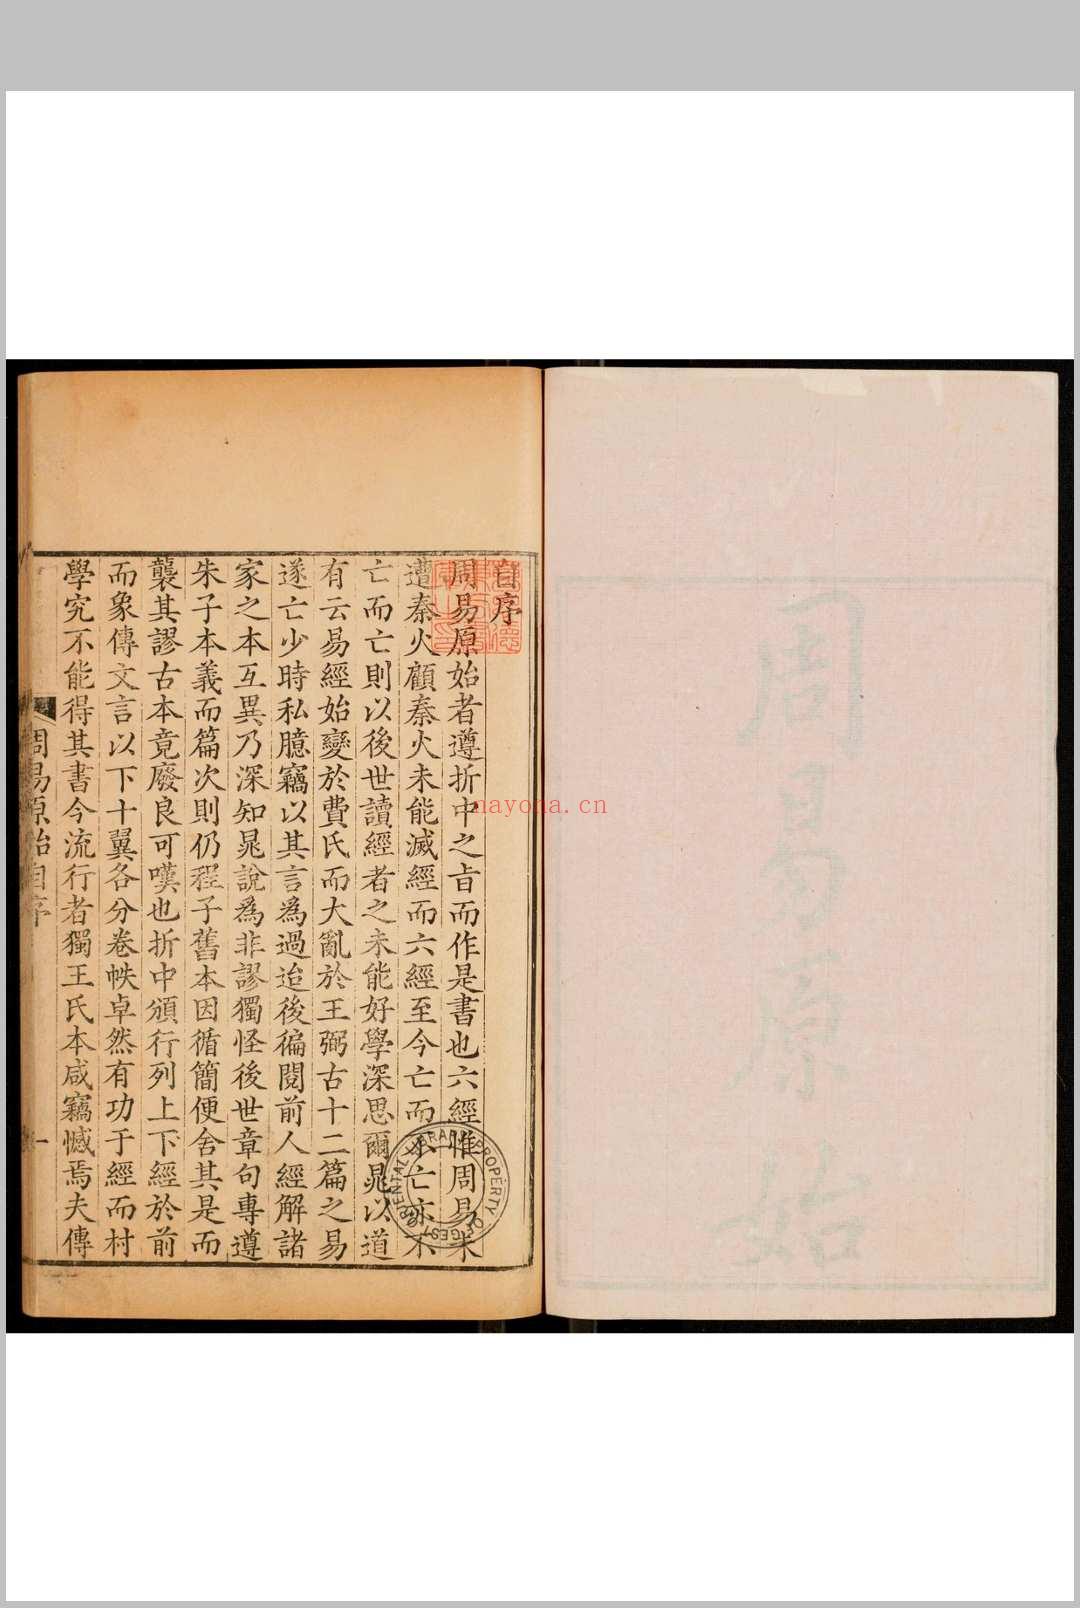 周易原始
自序
周易原始者遵折中之旨而作是書也六經惟周易未
遭秦火顧秦火未能滅經而六經至今亡而不亡亦不
亡而亡則以後世讀經者之未能好學深思爾晁以道
有云易經始變於費氏而大亂於王弼古十二篇之易
遂亡少時私臆竊以其言為過迨後徧閱前人經解諸
家之本互異乃深知晁說為非謬獨怪後世章句專遵
朱子本義而篇次則仍程子舊本因循簡便舍其是而
襲其謬古本竟廢良可嘆也折中頒行列上下經於前
而彖傳文言以下十翼各分卷帙卓然有功于經而村
學究不能得其書今流行者獨王氏本咸竊憾焉夫傳
周易原始自序
一
ORIENTAL LIBRARY PROPERTY OF GEST
nayona.cn